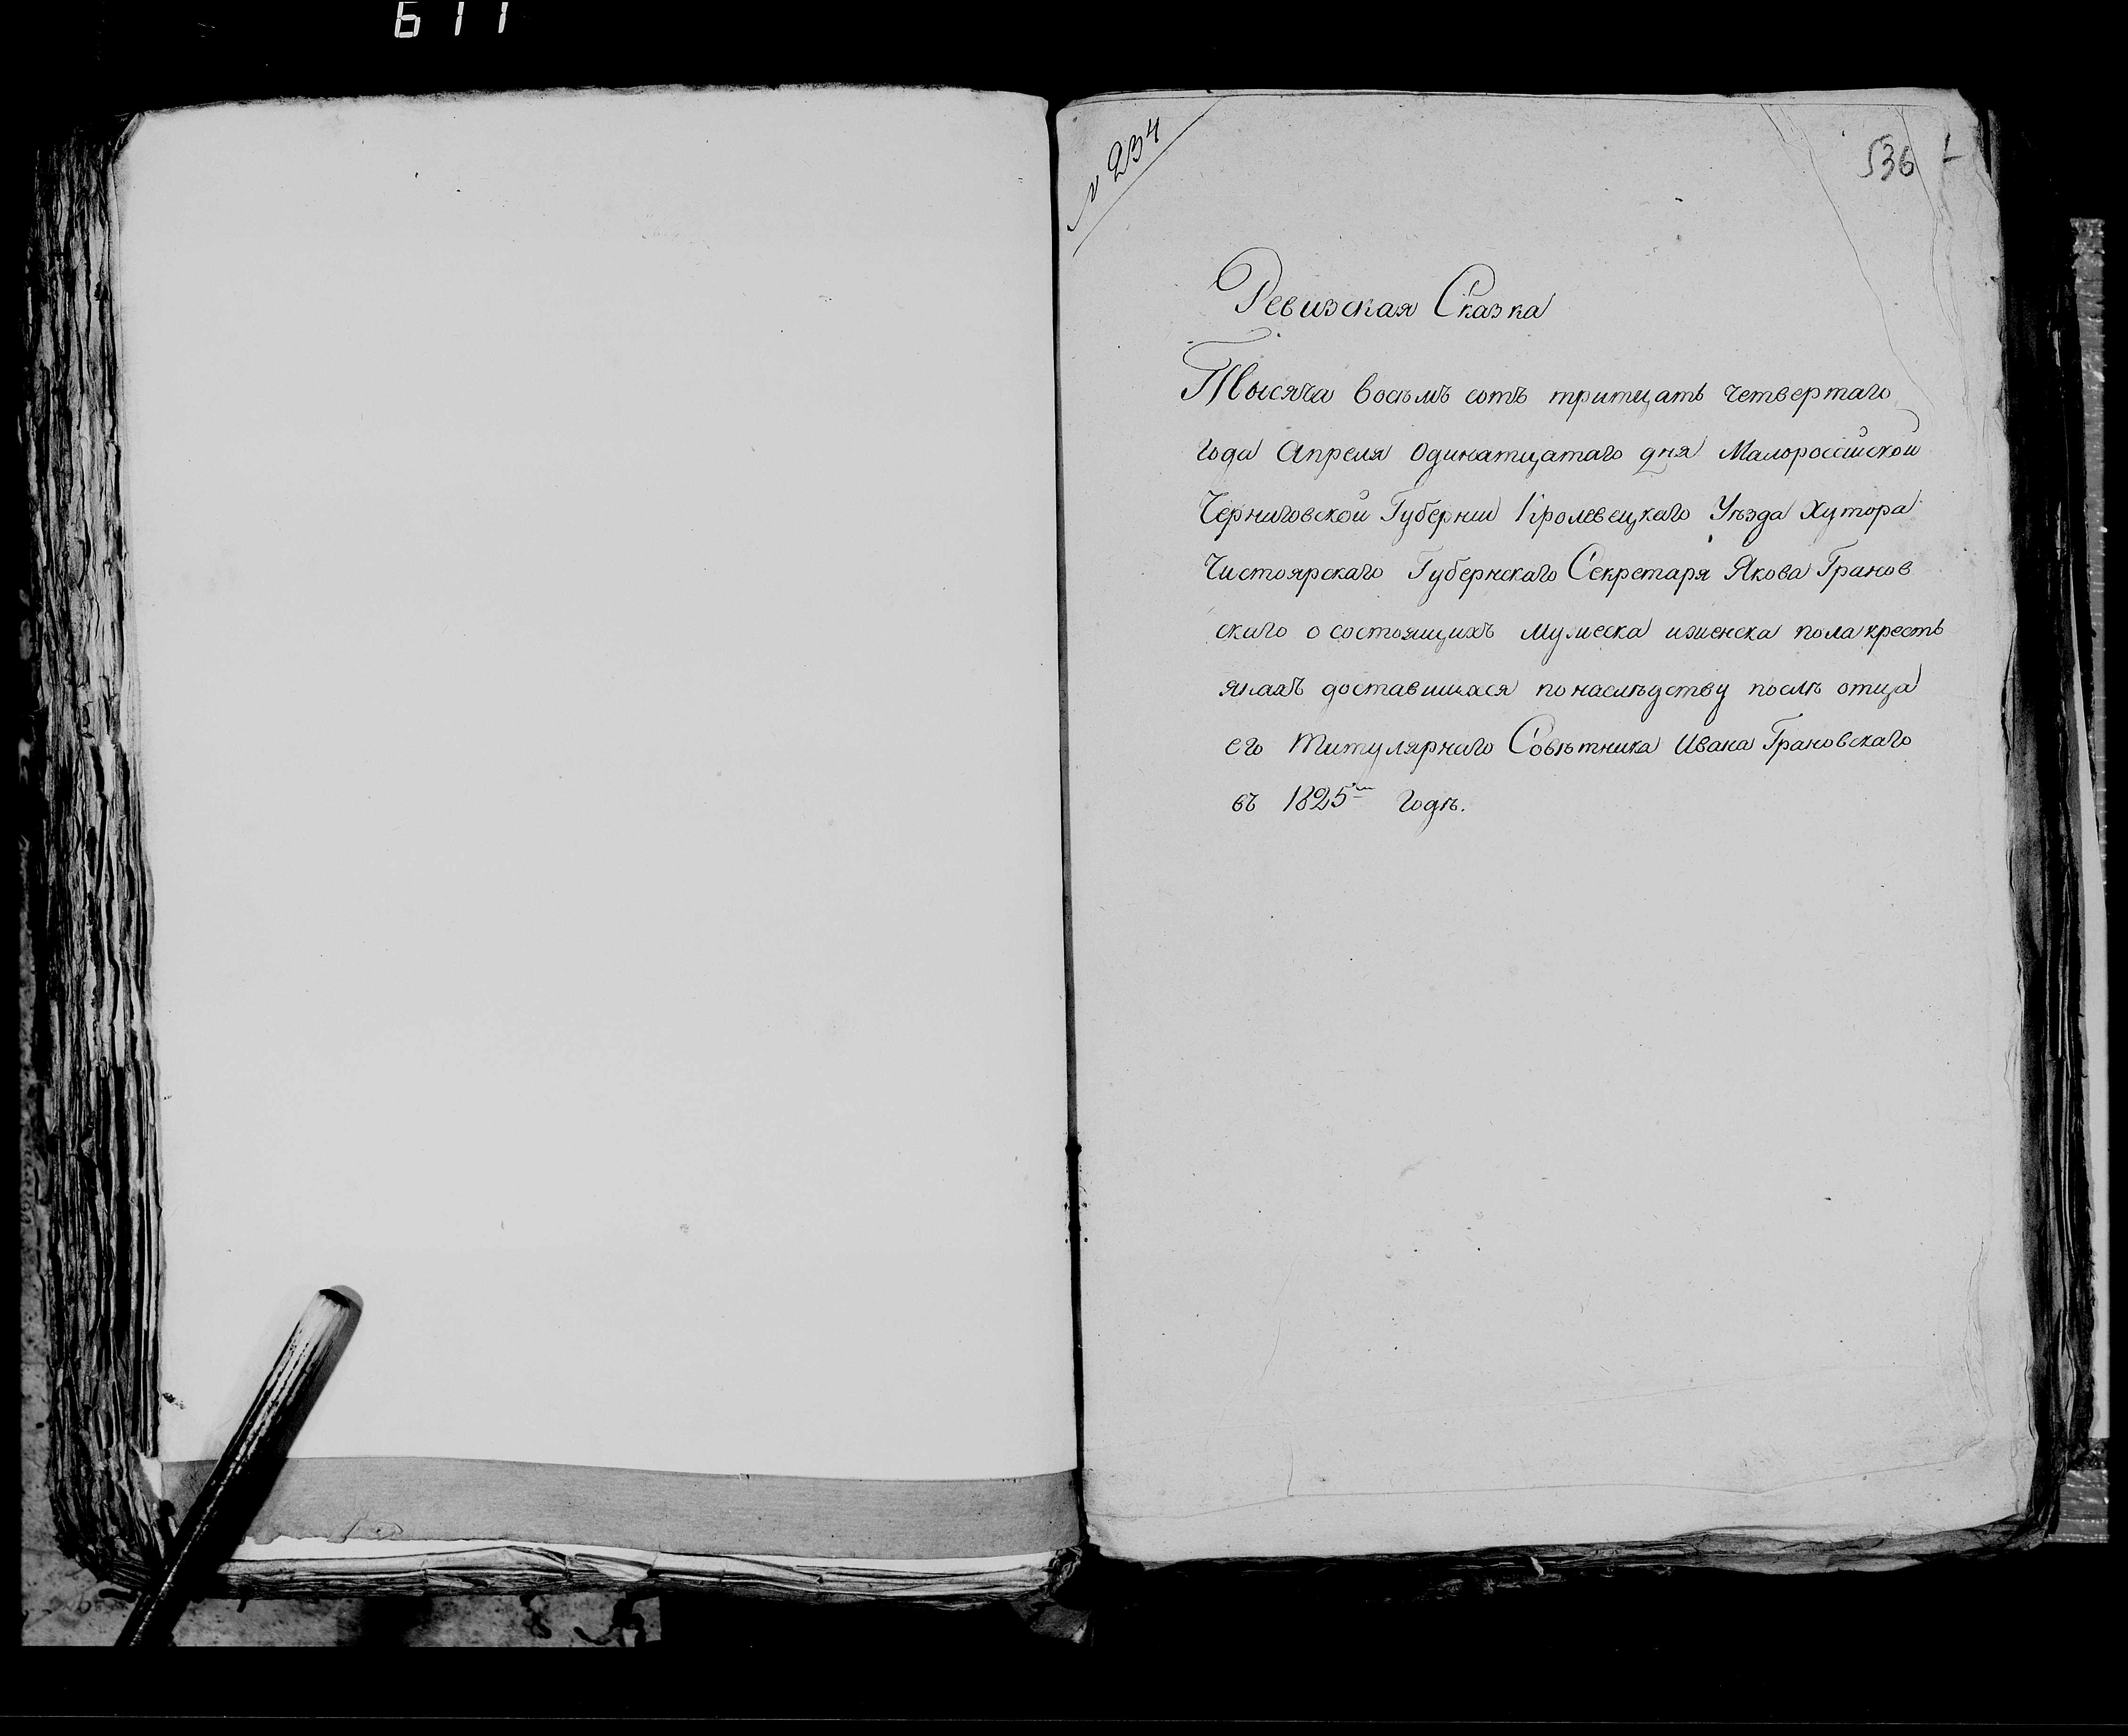 611
№ 234
536
Ревизская Сказка
Тысяча восъмъ сотъ тритцать четвертаго
года Апреля Одинатцатаго дня Малороссійской
Черниговской Губерніи Кролевецкаго Уѣзда Хутора
Чистоярскаго Губернскаго Секретаря Якова Гранов
скаго о состоящихъ мужеска иженска пола кресть
янахъ доставшихся понаслѣдству послѣ отца
его Титулярнаго Совѣтника Ивана Грановскаго
въ 1825м годѣ.